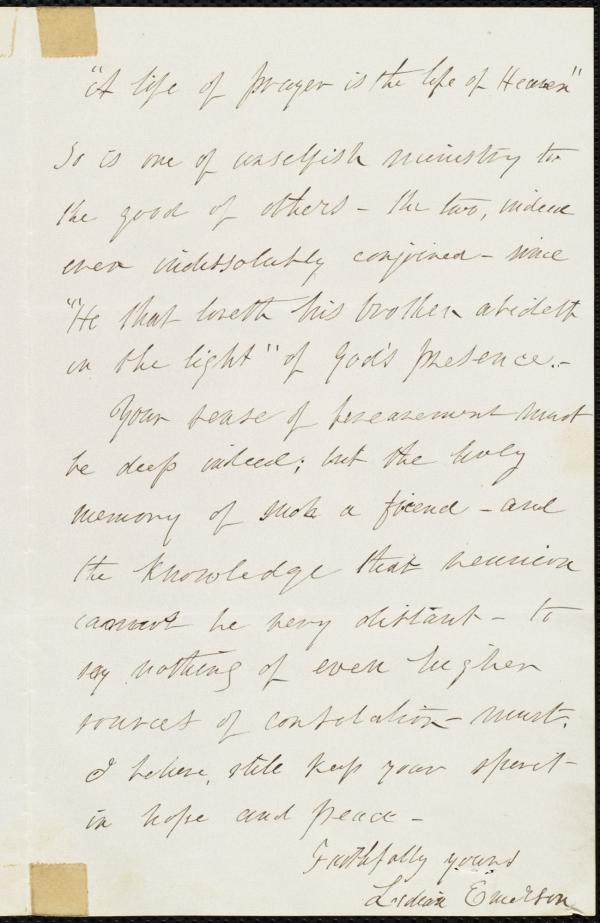 "A life of prayer is the life of Heaven"
So is one of unselfish ministry to
the good of others – the two, indeed
even indissolubly conjoined – since
"He that loveth his brother abideth
in the light" of God's presence. –
Your sense of bereavement must
be deep indeed; but the holy
memory of such a friend – and
the knowledge that reunion
cannot be very distant – to
say nothing of even higher
sources of consolation – must,
I believe, still keep your spirit
in hope and peace –
Faithfully yours
Lidian Emerson